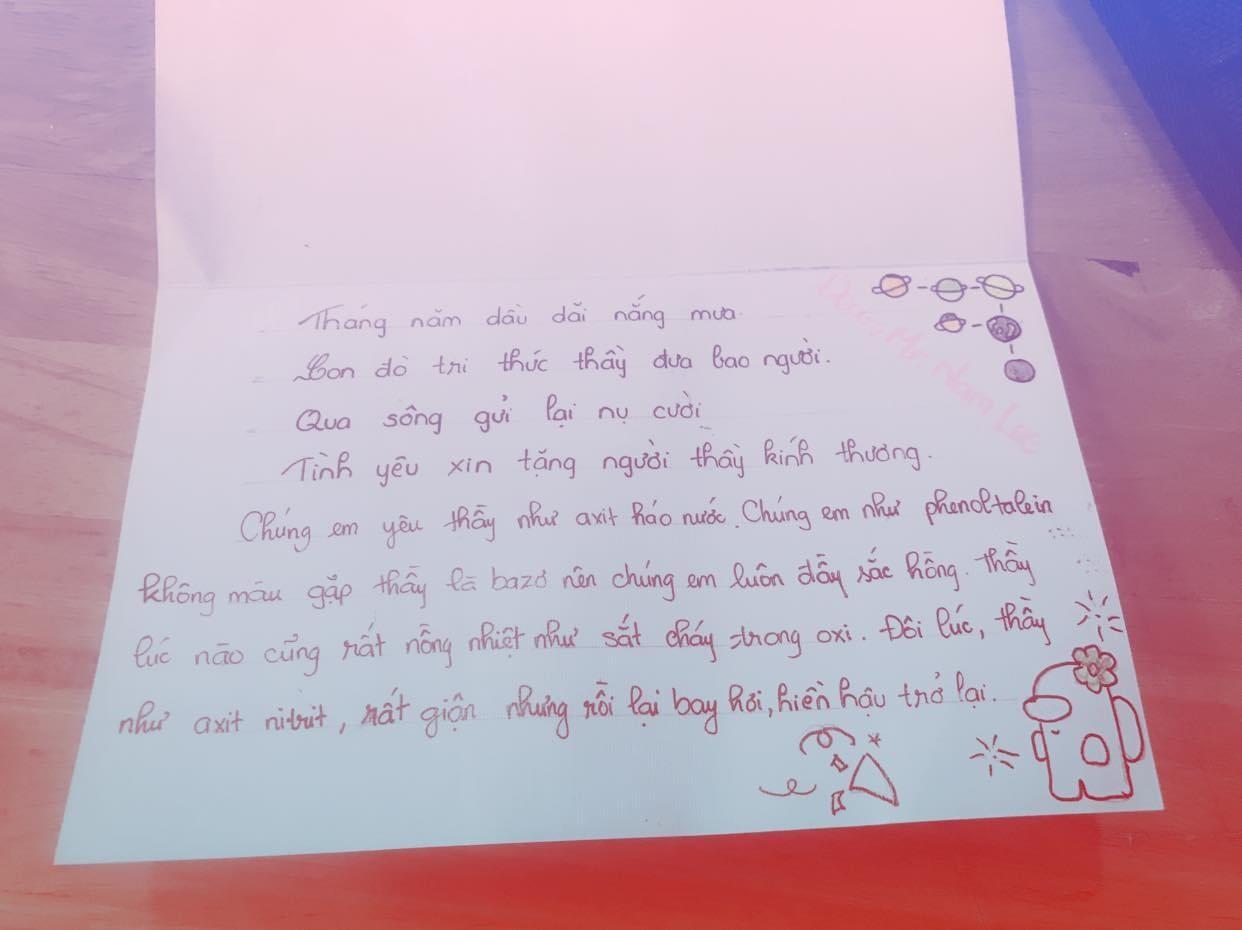 Tháng năm dầu dãi nắng mưa
Con đò tri thức thầy đưa bao người.
Qua sông gửi lại nụ cười
Tình yêu xin tặng người thầy kính thương.
Chúng em yêu thầy như axit háo nước. Chúng em như phenoltalein
không màu gặp thầy là bazơ nên chúng em luôn đầy sắc hồng. Thầy
lúc nào cũng rất nồng nhiệt như sắt cháy trong oxi. Đôi lúc, thầy
như axit nitrit, rất giận nhưng rồi lại bay hơi, hiền hậu trở lại.
Mr. Nam Lee